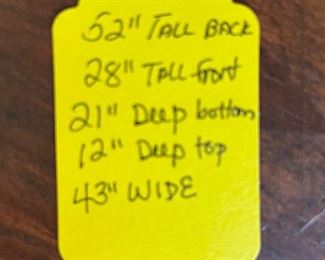 52" TALL BACK
28" TALL front
21" Deep bottom
12" Deep top
43" WIDE